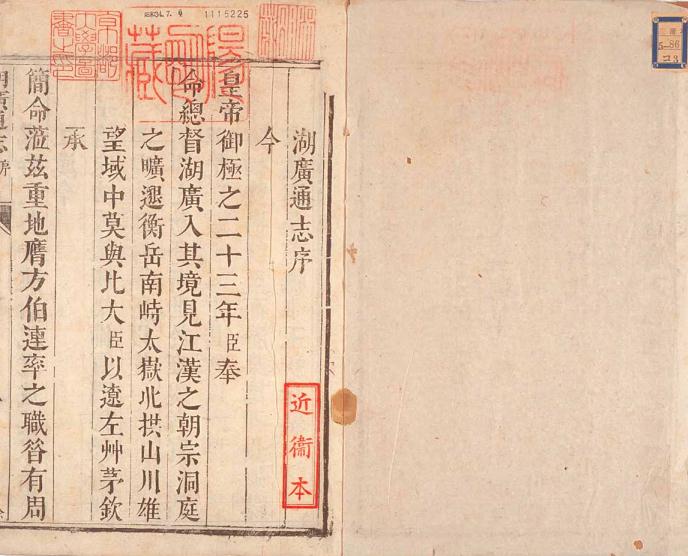 湖廣通志序
今
皇帝御極之二十三年臣奉
命總督湖廣入其境見江漢之朝宗洞庭
之曠邈衡岳南峙太嶽北拱山川雄
望域中莫與比大臣以遼左艸茅欽
承
簡命蒞茲重地膺方伯連率之職昝有周
湖廣通志 序
近衞本
京都
大學圖
書之印
藏
1115225
昭和34.7.9
5-86
コ3